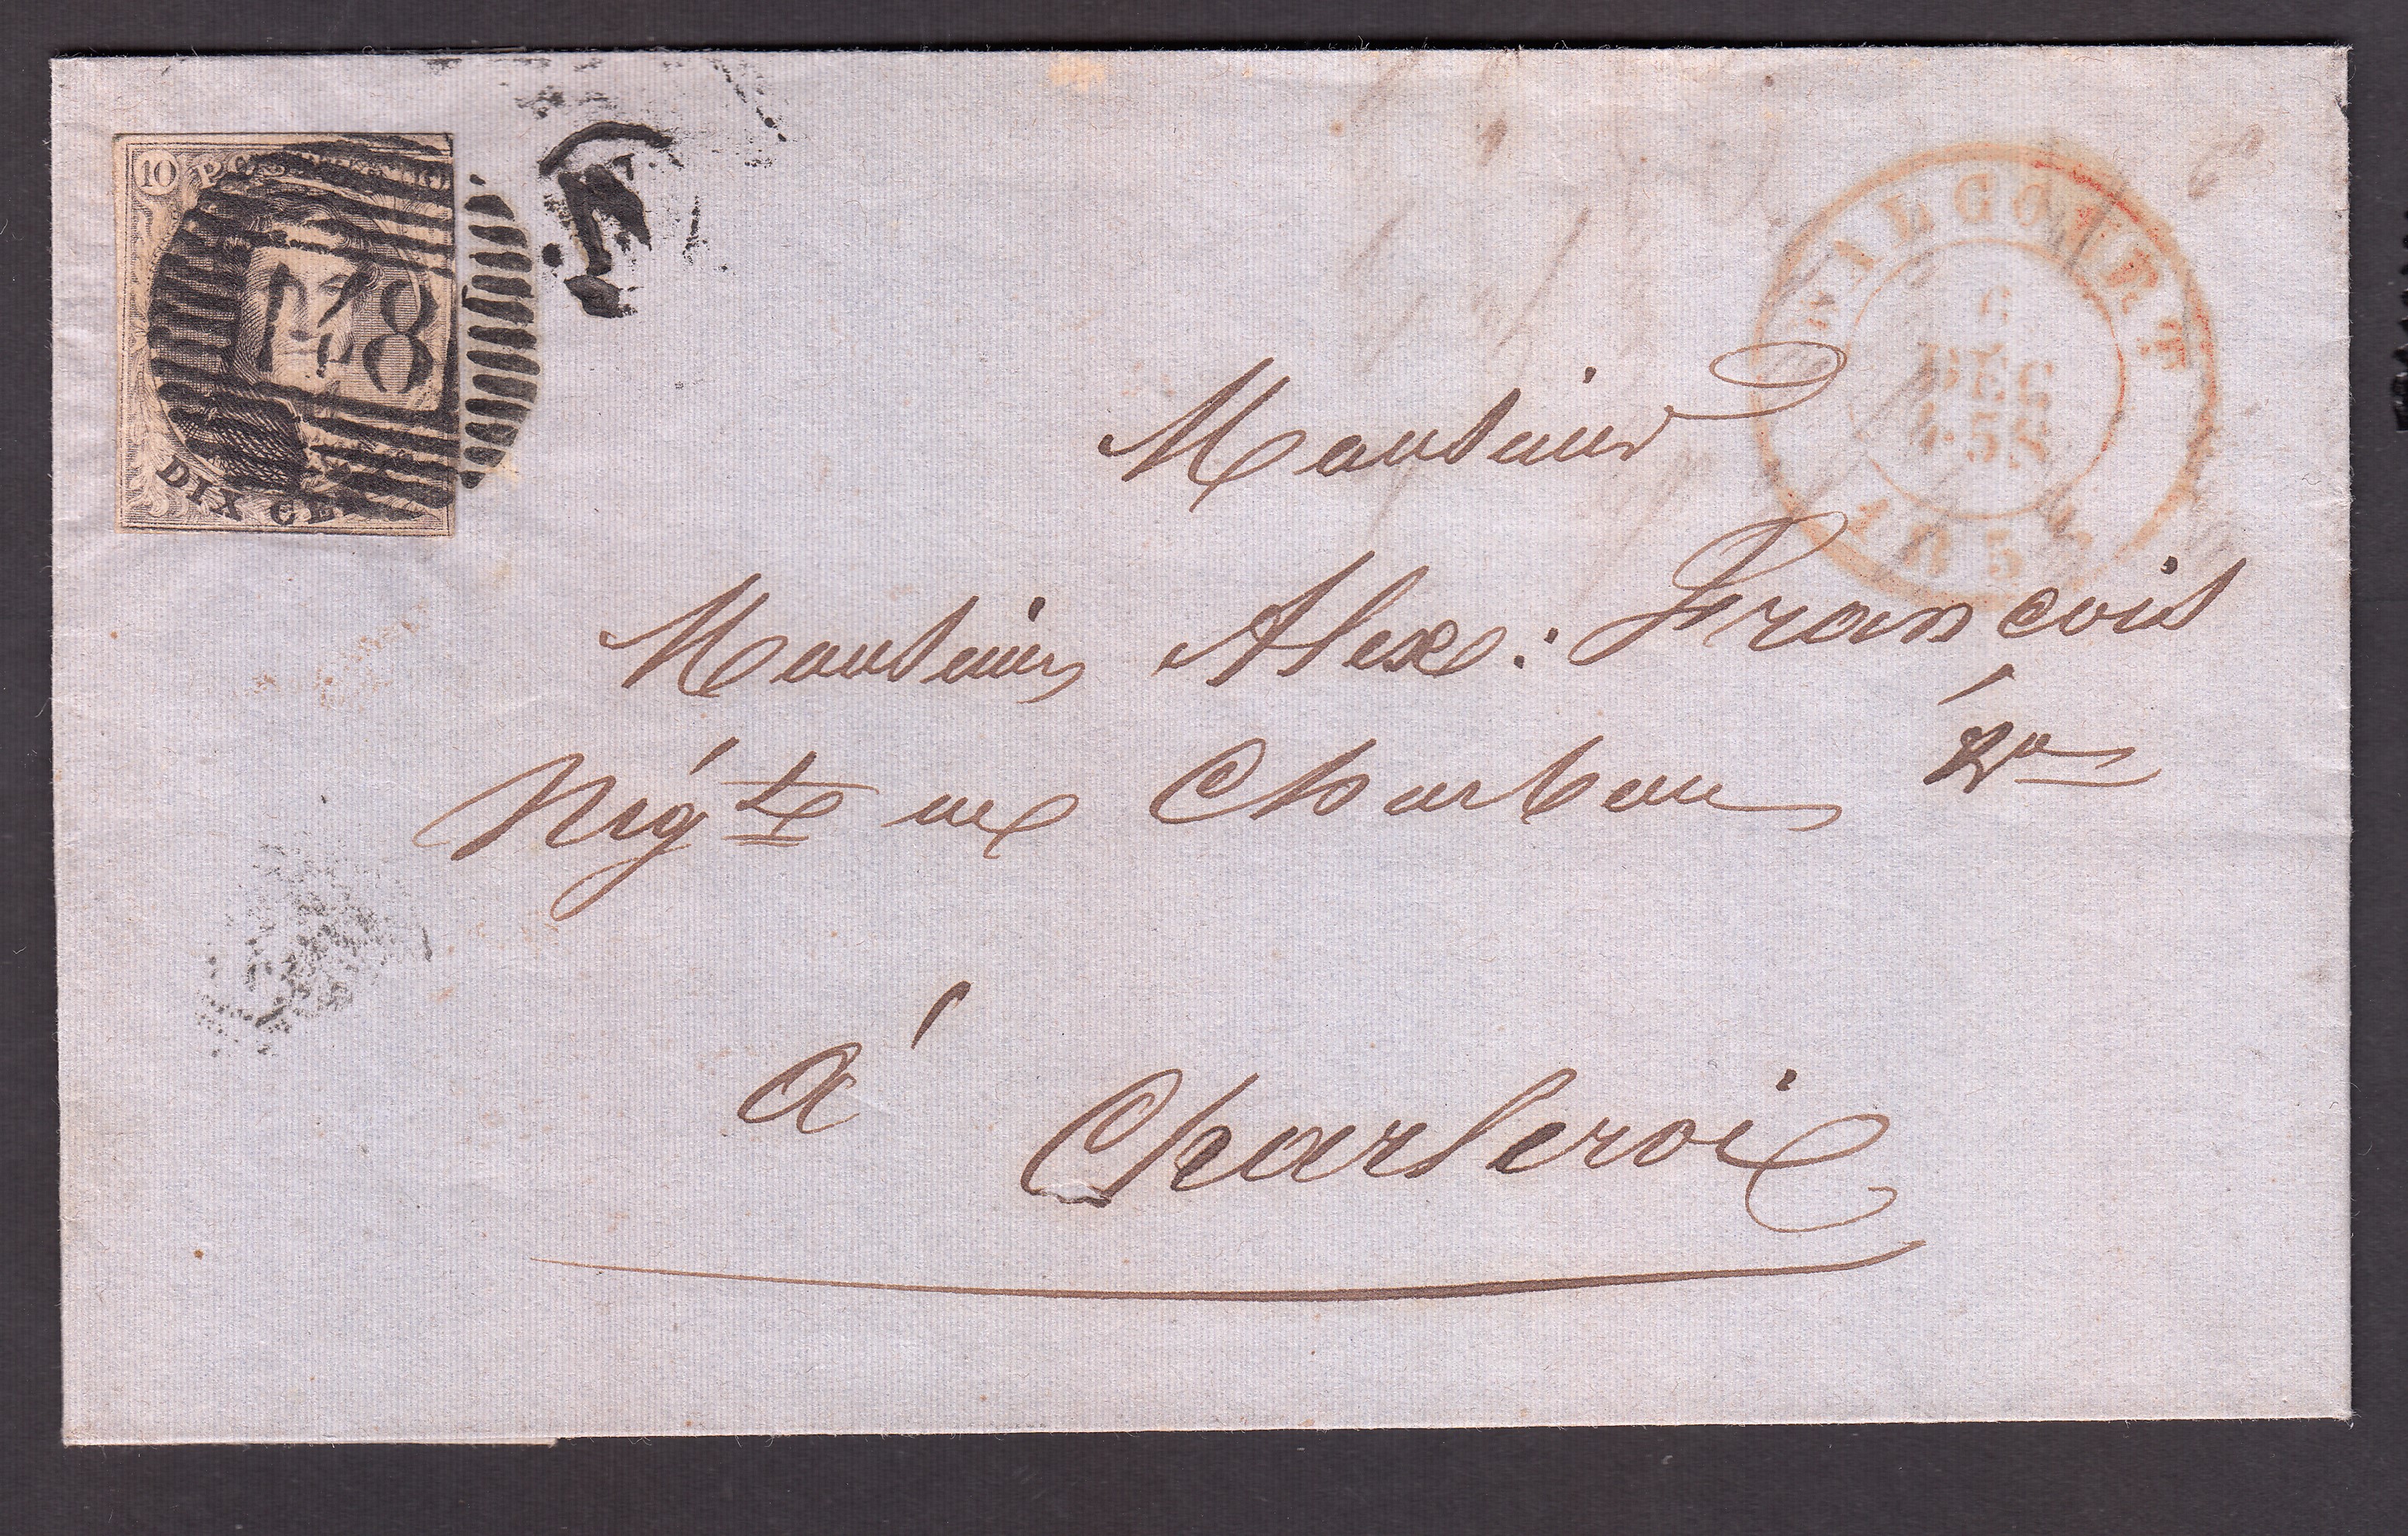 10 POSTES 10
178
DIX CENT
WALCOURT
6
DEC
4-5S
185
Monsieur
Monsieur Alex: François
Nég.te en Charbon
à
Charleroi